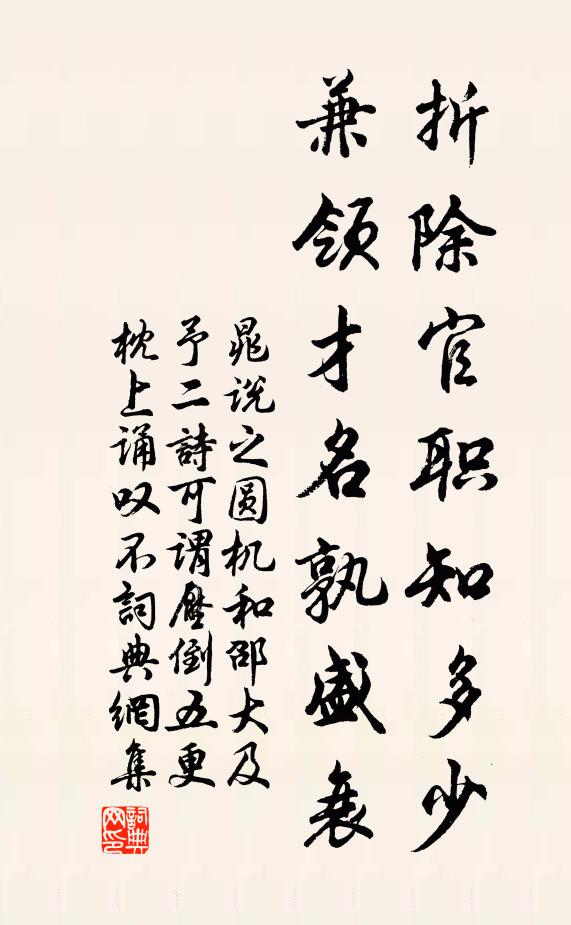 折除官职知多少
兼领才名孰盛衰
晁说之圆机和邵大及
予二詩可谓壓倒五更
枕上诵叹不詞典網集
詞典网印